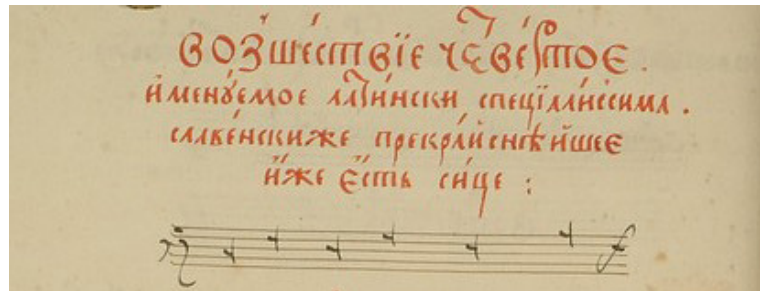 Возше́ствїе чєтве́ртоє.
и҆менꙋ́емое лати́нски специа́ли́ссима.
славе́нскиже прекра́йснѣ́йшее
и҆́же е҆́сть си́це :